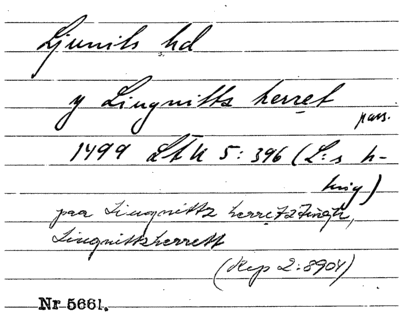 Ljunits hd
y Liugnitta herret pass.
1499 LÅU 5:396 (L:s h-
brig)
paa Liugnitta herretzting,
Liugnittherrett
(Rep 2:8904)
Nr 5661.